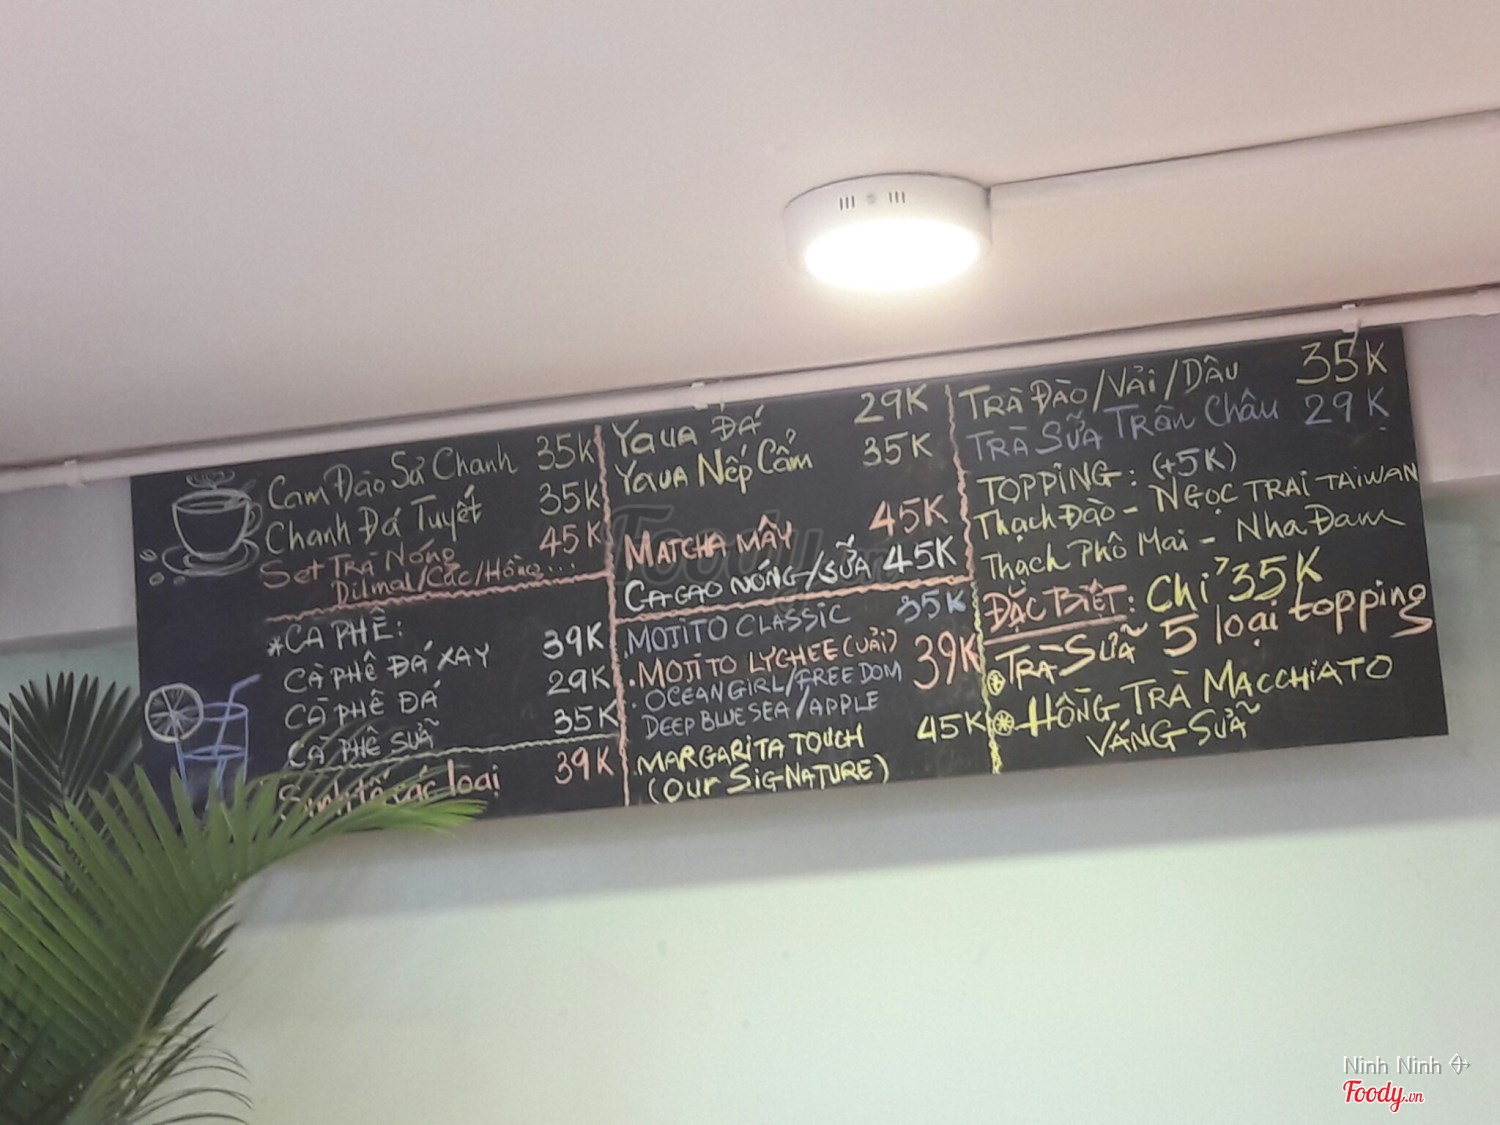 Cam Đào Sả Chanh 35K
Chanh Đá Tuyết 35K
Set Trà Nóng 45K
Dilmal/Cúc/Hồng...
*CA PHÊ:
CÀ PHÊ ĐÁ XAY 39K
CÀ PHÊ ĐÁ 29K
CÀ PHÊ SỮA 35K
Sinh tố các loại 39K
Yaua ĐÁ 29K
Yaua Nếp Cẩm 35K
MATCHA MÂY 45K
CACAO NÓNG/SỮA 45K
MOJITO CLASSIC 35K
MOJITO LYCHEE (VẢI) 39K
OCEAN GIRL/FREEDOM
DEEP BLUE SEA/APPLE
MARGARITA TOUCH 45K
(OUR SIGNATURE)
TRÀ ĐÀO/VẢI/DÂU 35K
TRÀ SỮA TRÂN Châu 29K
TOPPING: (+5K)
Thạch Đào - NGỌC TRAI TAIWAN
Thạch Phô Mai - Nha Đam
ĐẶC BIỆT: Chỉ 35K
TRÀ SỮA 5 loại topping
HỒNG TRÀ MACCHIATO
VÁNG SỮA
Foody.vn
Ninh Ninh
Foody.vn